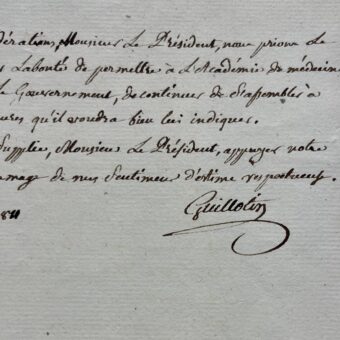 dérations, Monsieur Le Président, nous prions Le
Labonté de permettre à L'Académie de médecine
Le Gouvernement, de continuer de S'assembler à
ures qu'il voudra bien lui indiquer.
Supplie, Monsieur Le Président, appuyer
mage de nos Sentimens d'estime respectueux.
Guillotin